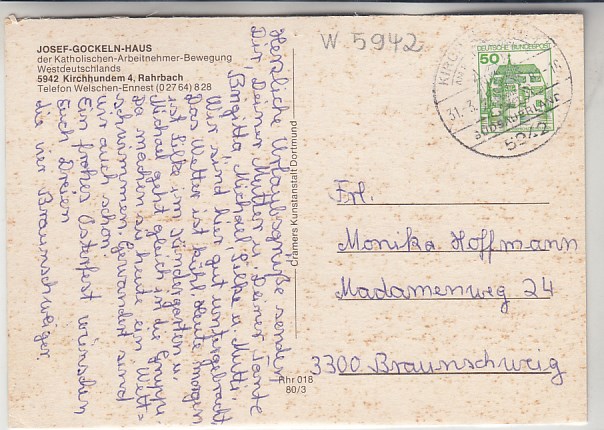 JOSEF-GOCKELN-HAUS
der Katholischen-Arbeitnehmer-Bewegung
Westdeutschlands
5942 Kirchhundem 4, Rahrbach
Telefon Welschen-Ennest (0 27 64) 8 28
Herzliche Urlaubsgrüße senden
Dir, Deiner Mutter u. Deiner Tante
Brigitta, Michael, Silke u. Mutti.
Wir sind hier gut untergebracht
Das Wetter ist kühl. Heute morgen
ist Silke im Kindergarten u.
Michael geht gleich in die Gruppe.
Da machen sie heute ein Wett=
schwimmen. Gewandert sind
wir auch schon.
Ein frohes Osterfest wünschen
Euch Dreien
die vier Braunschweiger.
Cramers Kunstanstalt Dortmund
Rhr 018
80/3
W 5942
DEUTSCHE BUNDESPOST
50
31.3.
SÜDSAUERLAND
5942
Frl.
Monika Hoffmann
Madamenweg 24
3300 Braunschweig